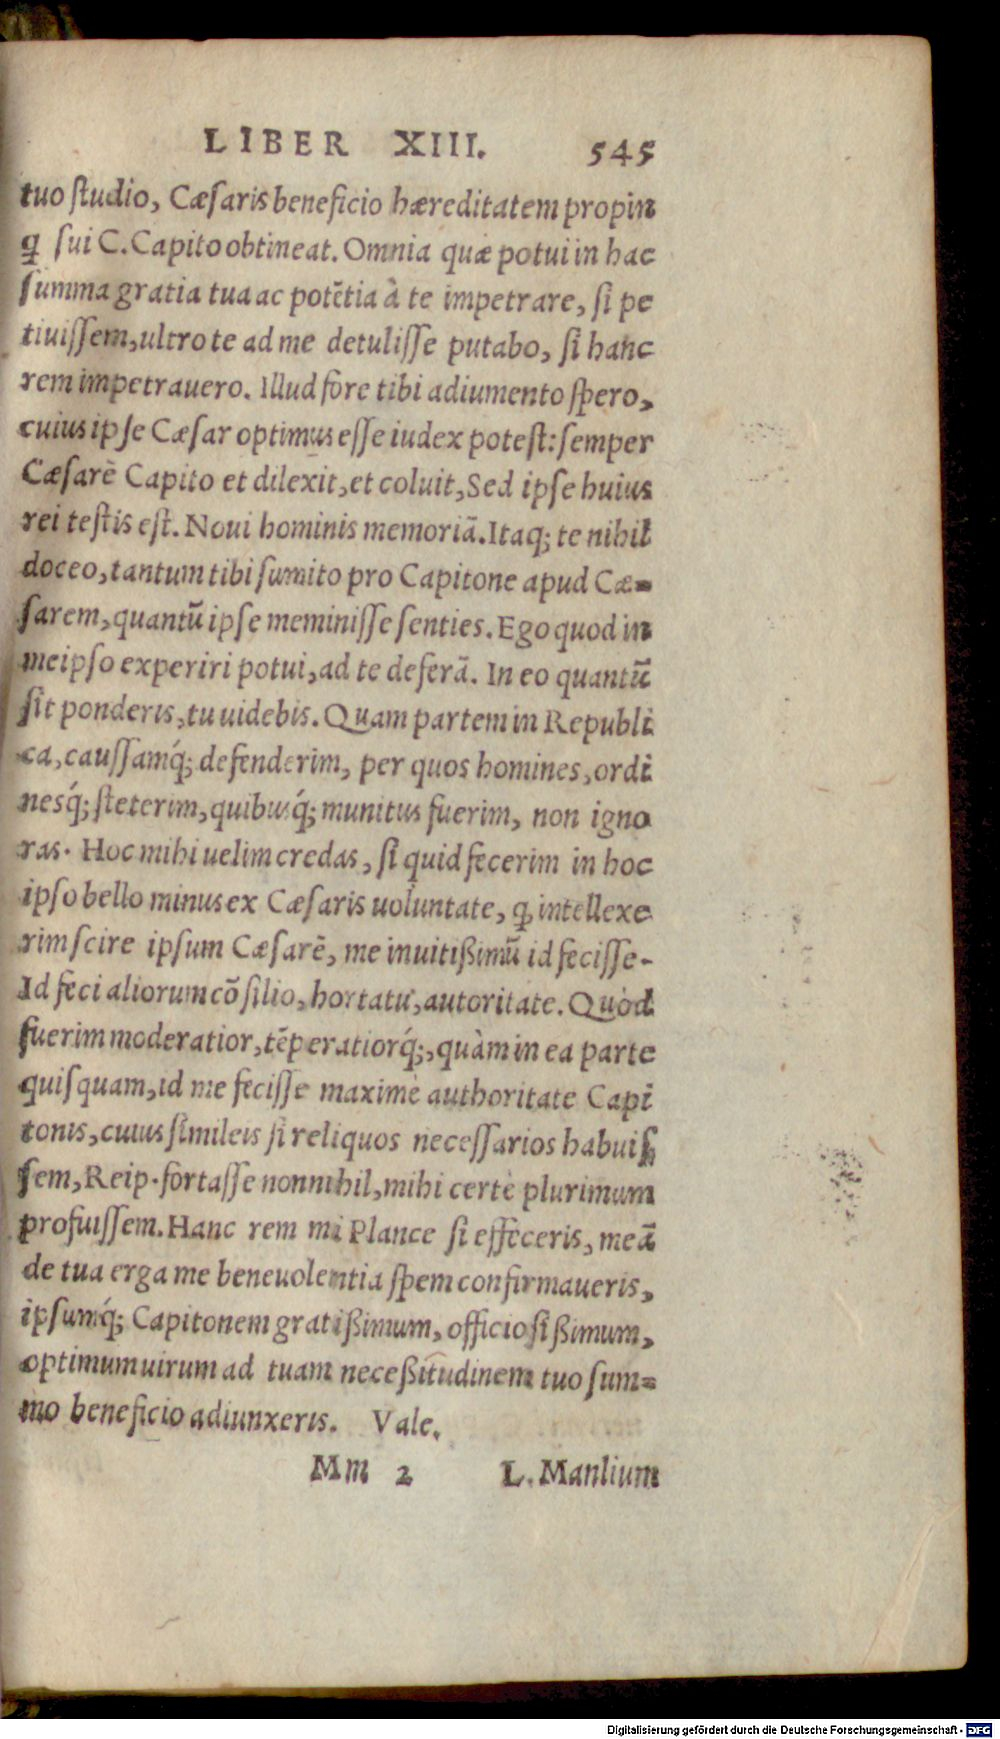 LIBER XIII. 545
tuo ſtudio, Cæſaris beneficio hæreditatem propin
q̃ ſui C. Capito obtineat. Omnia quæ potui in hac
ſumma gratia tua ac potẽtia à te impetrare, ſi pe
tiuiſſem, ultro te ad me detuliſſe putabo, ſi hanc
rem impetrauero. Illud fore tibi adiumento ſpero,
cuius ipſe Cæſar optimus eſſe iudex poteſt: ſemper
Cæſarẽ Capito et dilexit, et coluit, Sed ipſe huius
rei teſtis eſt. Noui hominis memoriã. Itaq; te nihil
doceo, tantum tibi ſumito pro Capitone apud Cæ=
ſarem, quantũ ipſe meminiſſe ſenties. Ego quod in
meipſo experiri potui, ad te deferã. In eo quantũ
ſit ponderis, tu uidebis. Quam partem in Republi
ca, cauſſamq́; defenderim, per quos homines, ordi
nesq́; ſteterim, quibusq́; munitus fuerim, non igno
ras. Hoc mihi uelim credas, ſi quid fecerim in hoc
ipſo bello minus ex Cæſaris uoluntate, q̃ intellexe
rim ſcire ipſum Cæſarẽ, me inuitißimũ id feciſſe.
Id feci aliorum cõſilio, hortatu, autoritate. Quòd
fuerim moderatior, tẽperatiorq́;, quàm in ea parte
quiſquam, id me feciſſe maximè authoritate Capi
tonis, cuius ſimileis ſi reliquos neceſſarios habuiſ
ſem, Reip. fortaſſe nonnihil, mihi certè plurimum
profuiſſem. Hanc rem mi Plance ſi effeceris, meã
de tua erga me beneuolentia ſpem confirmaueris,
ipſumq́; Capitonem gratißimum, officioſißimum,
optimum uirum ad tuam neceßitudinem tuo ſum=
mo beneficio adiunxeris. Vale.
Mm 2 L. Manlium
Digitalisierung gefördert durch die Deutsche Forschungsgemeinschaft - DFG